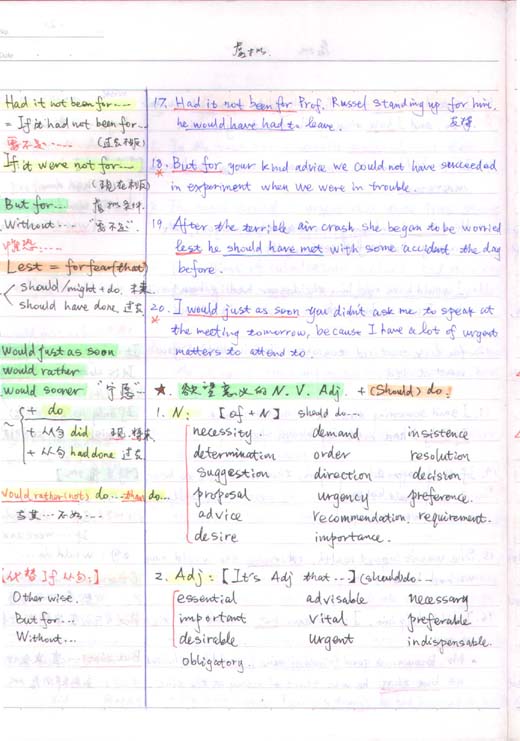 No.
Date
虚拟
Had it not been for......
= If it had not been for...
要不是...... (过去相反)
If it were not for......
(现在相反)
But for... 虚拟条件.
Without... "若不是"
Lest = for fear (that)
should/might + do. 未来
should have done. 过去
would just as soon
would rather
would sooner "宁愿"
+ do
+ 从句 did 现, 将来
+ 从句 had done 过去
would rather (not) do... than do...
与其...不如...
[代替 If 从句:]
Otherwise.
But for...
Without...
17. Had it not been for Prof. Russel standing up for him,
he would have had to leave. 支持
18. But for your kind advice we could not have succeeded
in experiment when we were in trouble.
19. After the terrible air crash she began to be worried
lest he should have met with some accident the day
before.
20. I would just as soon you didn't ask me to speak at
the meeting tomorrow, because I have a lot of urgent
matters to attend to.
★. 欲望意义的 N. V. Adj. + (should) do.
1. N: [of + N] should do...
necessity. demand insistence
determination order resolution
suggestion direction decision
proposal urgency preference.
advice recommendation. requirement.
desire importance.
2. Adj: [It's Adj that...] (should) do...
essential advisable necessary
important vital preferable
desirable urgent indispensable.
obligatory.